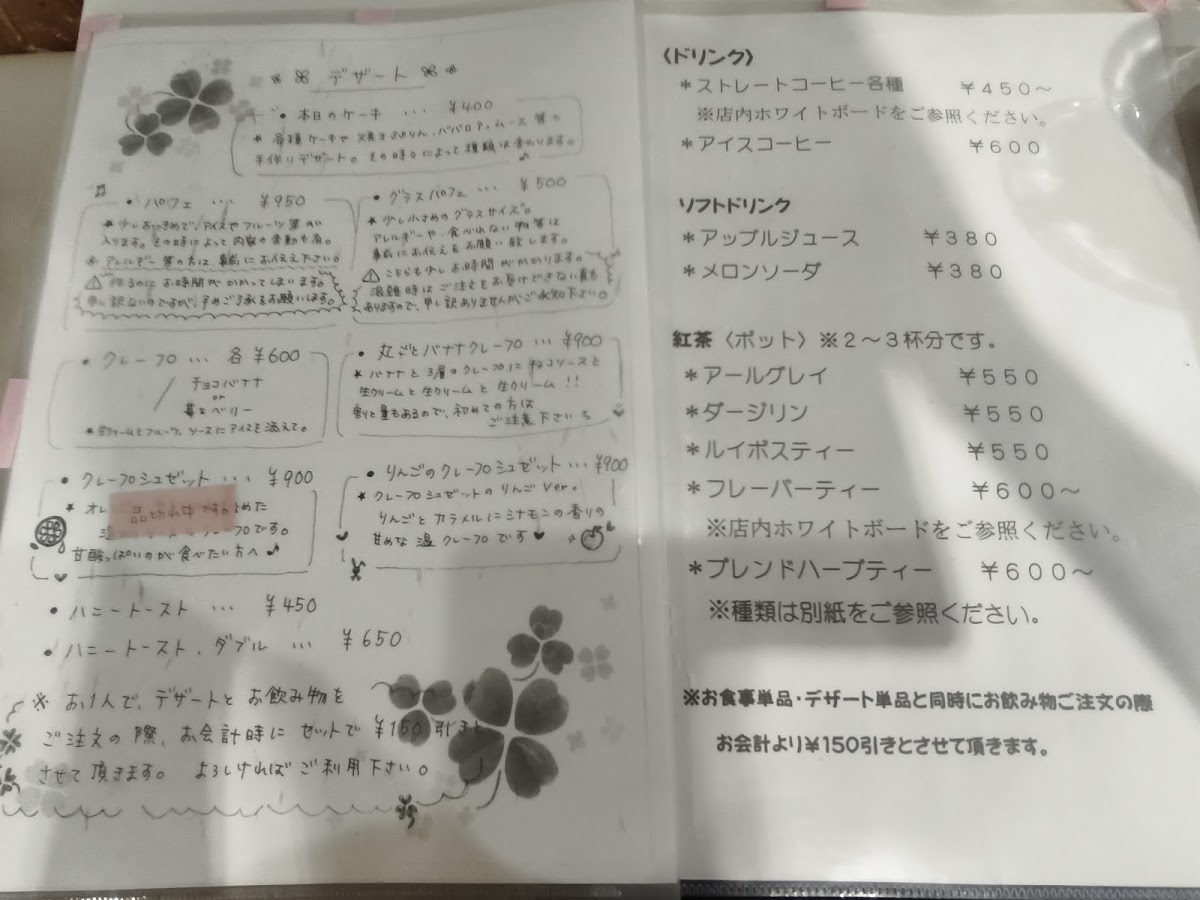 デザート
• 本日のケーキ … ¥400
★ 各種ケーキや焼きぷりん、ババロア、ムース 等の
手作りデザート。その時々によって種類は変わります。♪
• パフェ … ¥950
★ 少し大きめで、アイスやフルーツ等が
入ります。その日によって内容の変動も有。
★ アレルギー等の方は、事前にお伝え下さい。
⚠ 作るのにお時間がかかってしまいます。
申し訳ないのですが、予めご了承をお願いします。
• グラスパフェ … ¥500
★ 少し小さめのグラスサイズ。
アレルギーや、食べれない物等は
事前にお伝えをお願い致します。
⚠ こちらも少しお時間がかかります。
混雑時はご注文をお受けできない事も
ありますので、申し訳ありませんがご承知下さい。
• クレープ … 各 ¥600
チョコバナナ
or
苺とベリー
★ 生クリームとフルーツ、ソースにアイスを添えて。
• 丸ごとバナナクレープ … ¥900
★ バナナと3層のクレープにチョコソースと
生クリームと生クリームと生クリーム!!
割と量もあるので、初めての方は
ご注意下さい
• クレープシュゼット … ¥900
★ オレ
品切れ中です。
めた
温
プです。
甘酸っぱいのが食べたい方へ♪
• りんごのクレープシュゼット … ¥900
★ クレープシュゼットのりんごver.
りんごとカラメルにシナモンの香りの
甘めな温クレープです
• ハニートースト … ¥450
• ハニートースト・ダブル … ¥650
※ お1人で、デザートとお飲み物を
ご注文の際、お会計時にセットで¥150引きと
させて頂きます。 よろしければご利用下さい。
〈ドリンク〉
*ストレートコーヒー各種 ¥450～
※店内ホワイトボードをご参照ください。
*アイスコーヒー ¥600
ソフトドリンク
*アップルジュース ¥380
*メロンソーダ ¥380
紅茶〈ポット〉※2～3杯分です。
*アールグレイ ¥550
*ダージリン ¥550
*ルイボスティー ¥550
*フレーバーティー ¥600～
※店内ホワイトボードをご参照ください。
*ブレンドハーブティー ¥600～
※種類は別紙をご参照ください。
※お食事単品・デザート単品と同時にお飲み物ご注文の際
お会計より¥150引きとさせて頂きます。